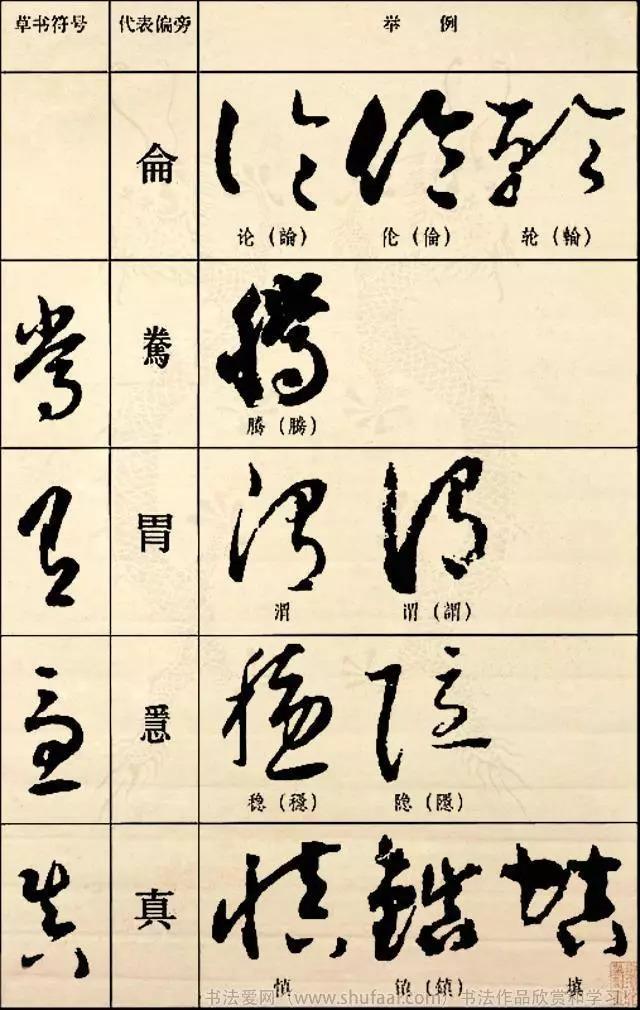 草书符号 代表偏旁 举例
侖
论（論） 伦（倫） 轮（輪）
腾（騰）
胃
渭 谓（謂）
稳（穩） 隐（隱）
真
慎 镇（鎮） 填
书法爱网（www.shufaai.com）书法作品欣赏和学习